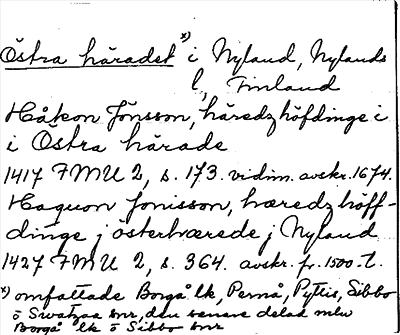 Östra häradet x) i Nyland, Nylands
l, Finland
Håkon Jönsson, häredzhöfdinge i
i Östra härade
1417 FMU 2, s. 173. vidim. avskr. 1674.
Haquon Jonisson, hæredzhöff-
dinge j österhærede j Nyland
1427 FMU 2, s. 364. avskr. fr. 1500-t.
x) omfattade Borgå lk, Pernå, Pyttis, Sibbo
o snr, den senare delad mlw
Borgå lk o Sibbo snr